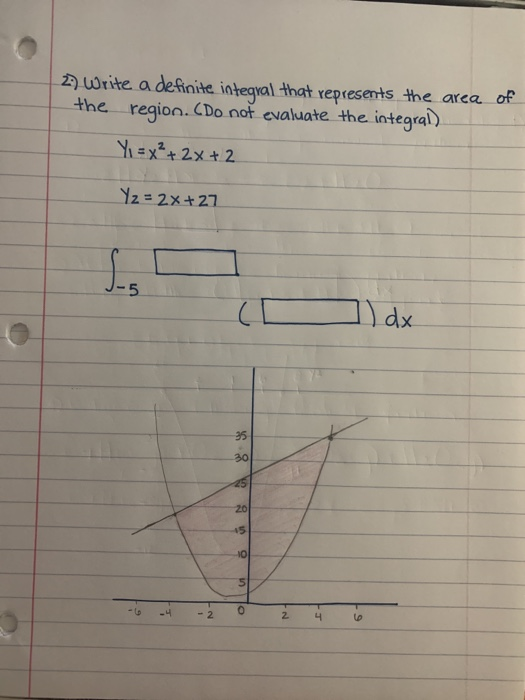 2.) Write a definite integral that represents the area of
the region. (Do not evaluate the integral)
Y₁ = x² + 2x + 2
Y₂ = 2x + 27
∫₋₅
( ) dx
35
30
25
20
15
10
5
-6 -4 -2 0 2 4 6